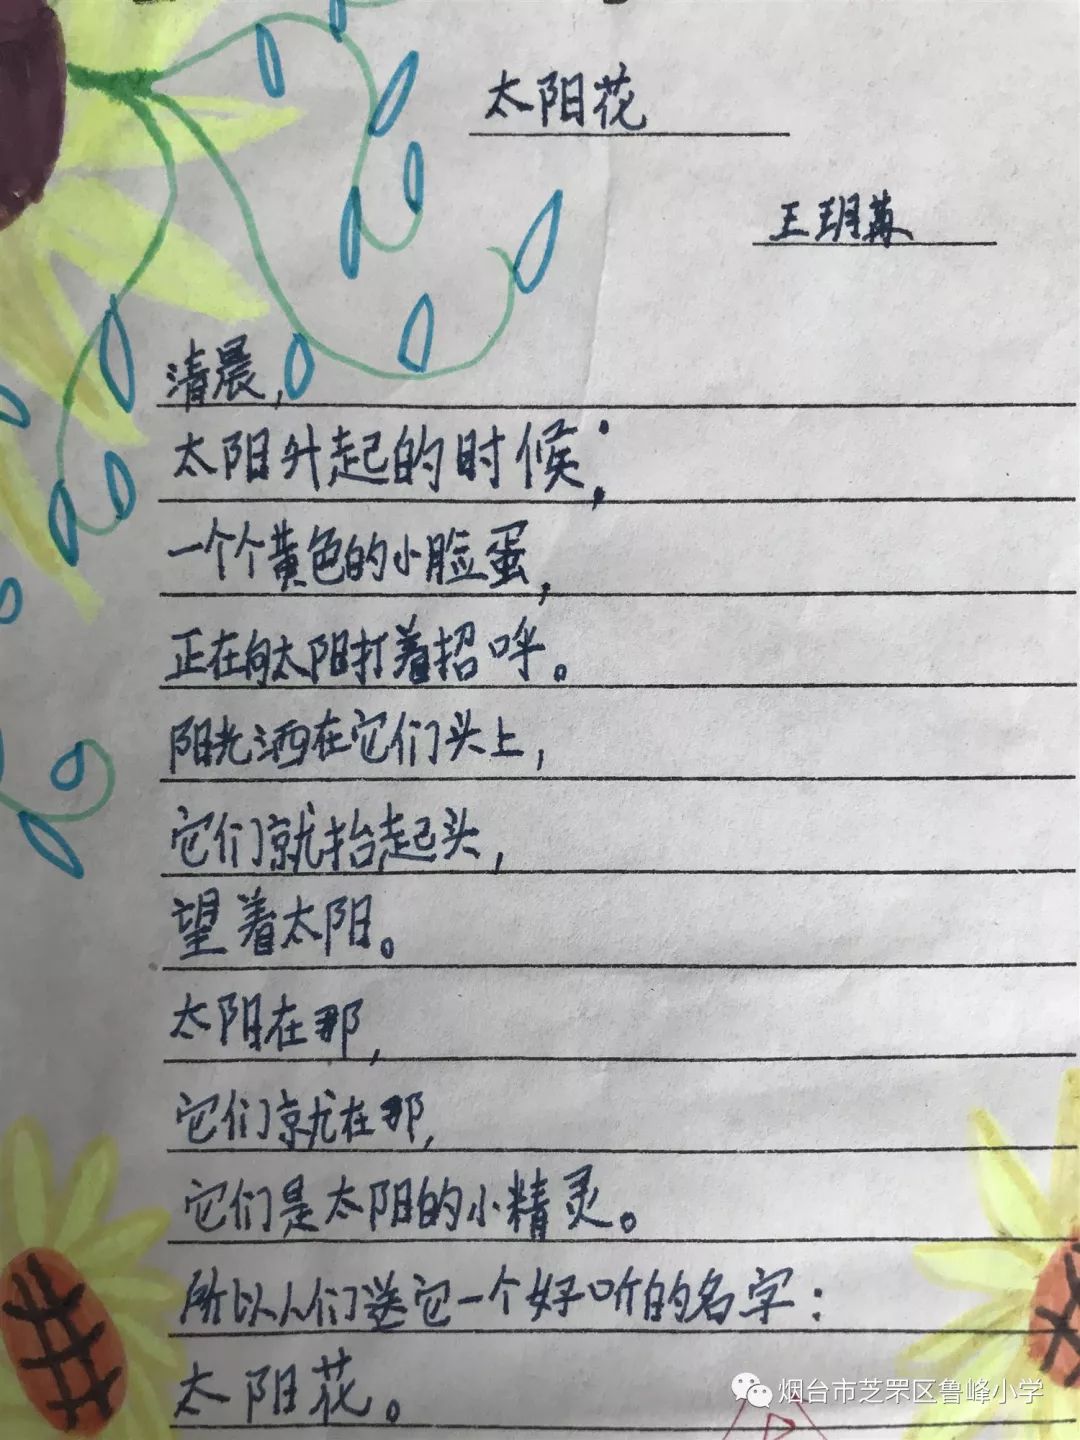 太阳花
王玥苒
清晨,
太阳升起的时候,
一个个黄色的小脸蛋,
正在向太阳打着招呼。
阳光洒在它们头上,
它们就抬起头,
望着太阳。
太阳在那,
它们就在那,
它们是太阳的小精灵。
所以人们送它一个好听的名字:
太阳花。
烟台市芝罘区鲁峰小学